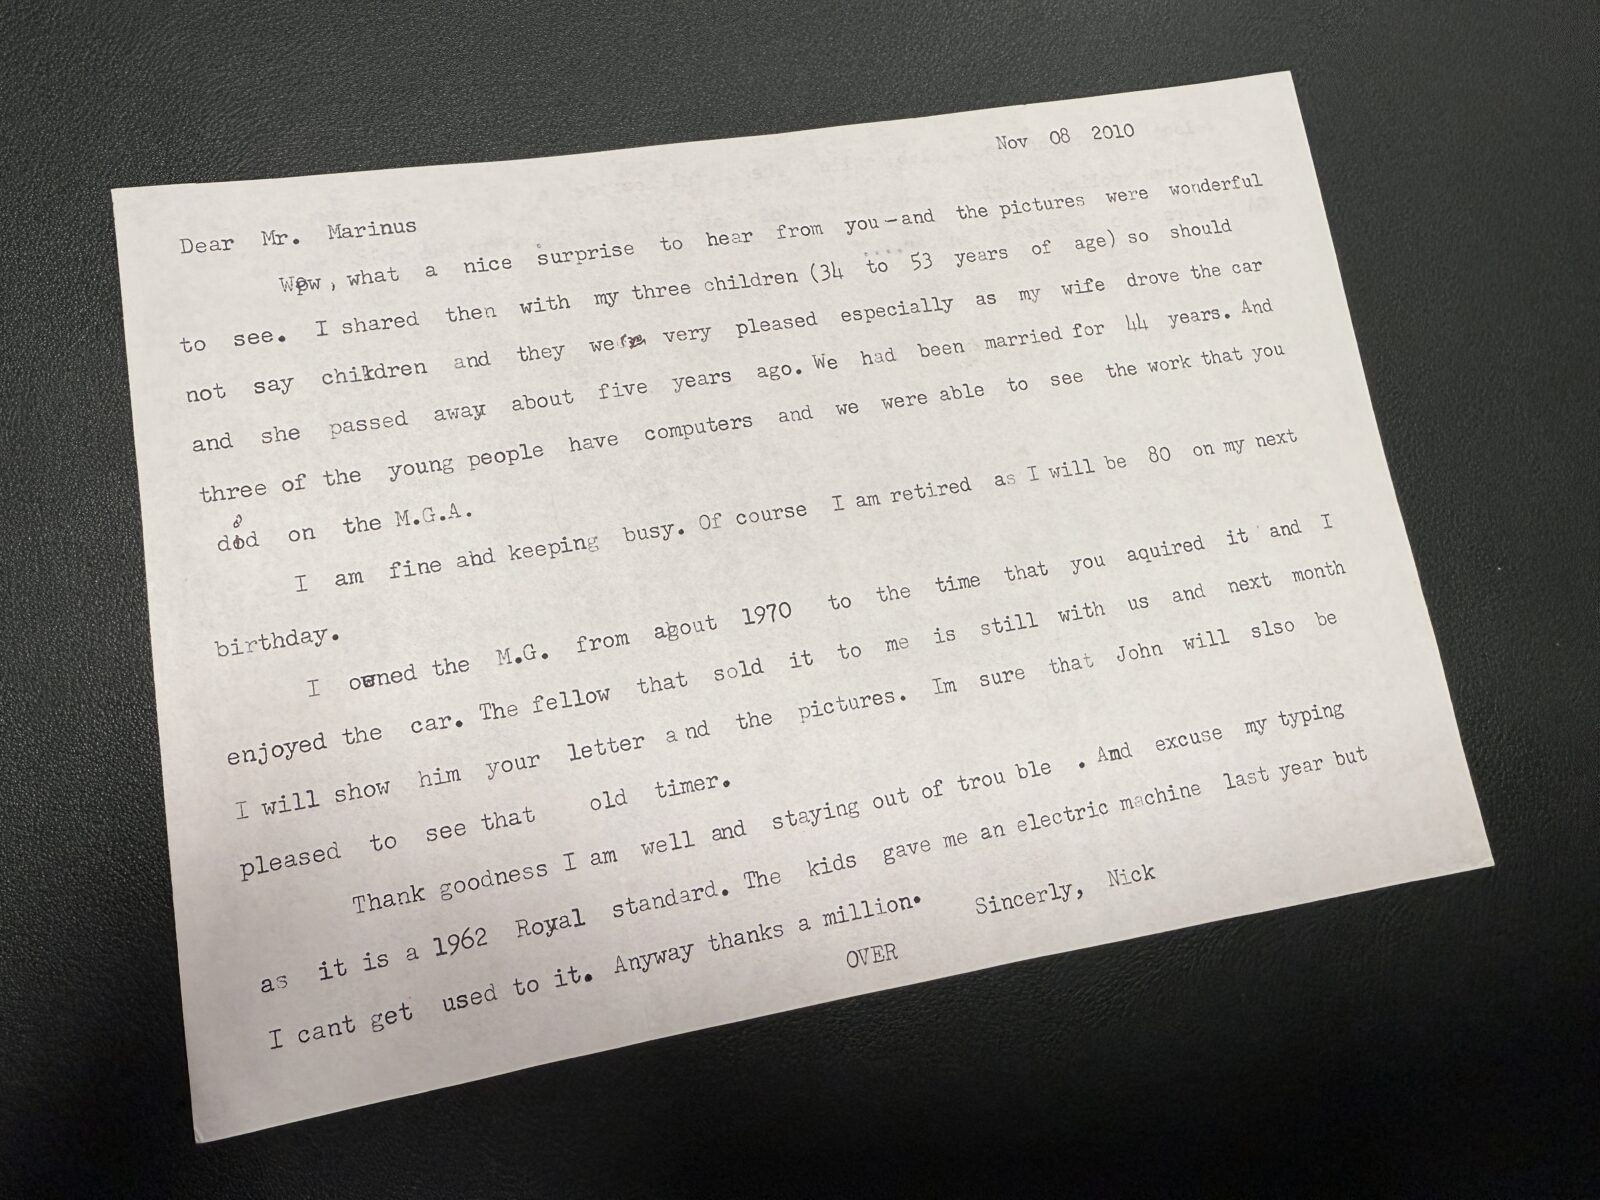 Nov 08 2010
Dear Mr. Marinus
Wow, what a nice surprise to hear from you-and the pictures were wonderful
to see. I shared then with my three children (34 to 53 years of age) so should
not say children and they were very pleased especially as my wife drove the car
and she passed away about five years ago. We had been married for 44 years. And
three of the young people have computers and we were able to see the work that you
did on the M.G.A.
I am fine and keeping busy. Of course I am retired as I will be 80 on my next
birthday.
I owned the M.G. from about 1970 to the time that you aquired it and I
enjoyed the car. The fellow that sold it to me is still with us and next month
I will show him your letter and the pictures. Im sure that John will slso be
pleased to see that old timer.
Thank goodness I am well and staying out of trou ble . And excuse my typing
as it is a 1962 Royal standard. The kids gave me an electric machine last year but
I cant get used to it. Anyway thanks a million. Sincerly, Nick
OVER